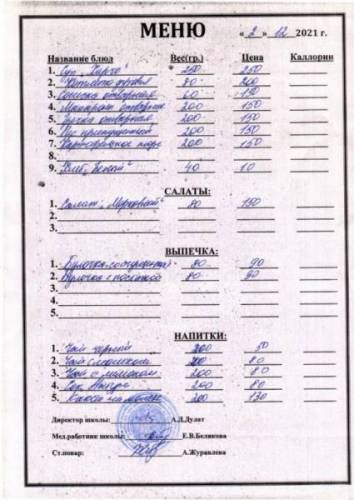 МЕНЮ « 2 » 12 2021 г.
Название блюд Вес(гр.) Цена Каллории
1. Суп "Харчо" 250 250
2. 80 200
3. отварная 60 130
4. Макароны отварные 200 150
5. Гречка отварная 200 150
6. Рис припущенный 200 150
7. Картофельное пюре 200 150
8.
9. Хлеб 40 10
САЛАТЫ:
1. Салат 80 150
2.
3.
ВЫПЕЧКА:
1. Булочка 80 90
2. Булочка с 80 90
3.
4.
5.
НАПИТКИ:
1. Чай черный 200 50
2. Чай с лимоном 200 80
3. Чай с молоком 200 80
4. Сок 200 80
5. Какао на молоке 200 130
Директор школы: А.Д.Дулат
Мед.работник школы: Е.В.Беликова
Ст.повар: А.Журавлева